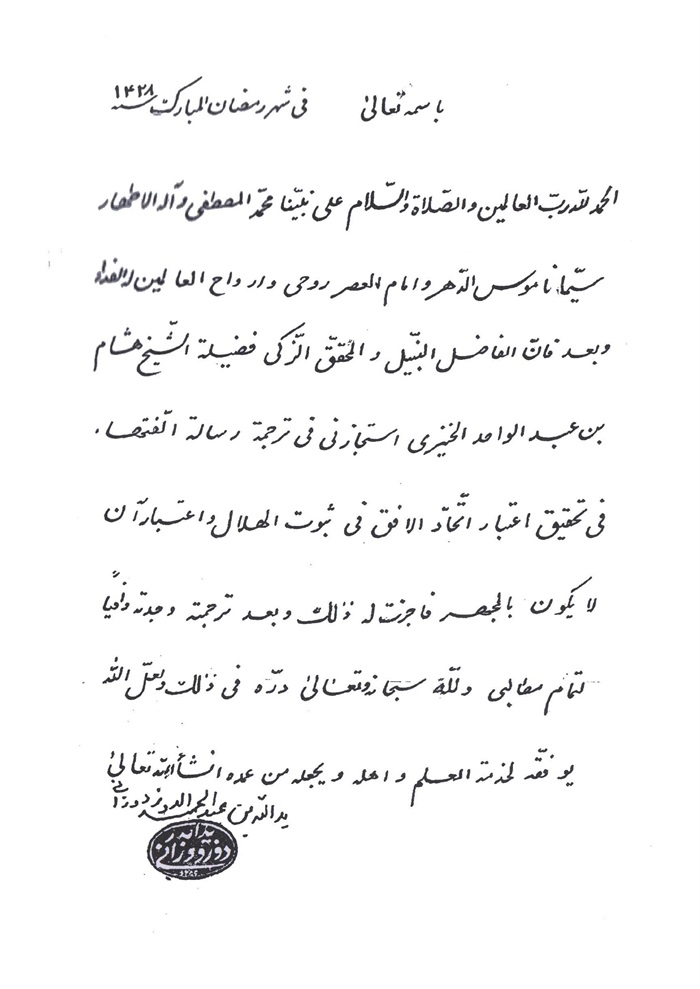 باسمه تعالى في شهر رمضان المبارك سنة ١٤٢٨
الحمد لله رب العالمين والصّلاة والسّلام على نبيّنا محمّد المصطفى وآله الاطهار
سيّما ناموس الدّهر وامام العصر روحى وارواح العالمين له الفداء
وبعد فانّ الفاضل النبّيل والمحقّق الزّكى فضيلة الشّيخ هشام
بن عبد الواحد الخنيزى استجازنى فى ترجمة رسالة الّفتها
فى تحقيق اعتبار اتّحاد الافق فى ثبوت الهلال واعتبار آن
لا يكون بالمجهر فاجزت له ذلك وبعد ترجمته وجدته وافياً
لتمام مطالبى وللّه سبحانه وتعالى درّه فى ذلك ولعلّ الله
يوفّقه لخدمة العلم واهله ويجعله من عمده انشأ الله تعالى
يد الله بن عبد الحميد الدوزدوزانى
يد الله دوزدوزانى